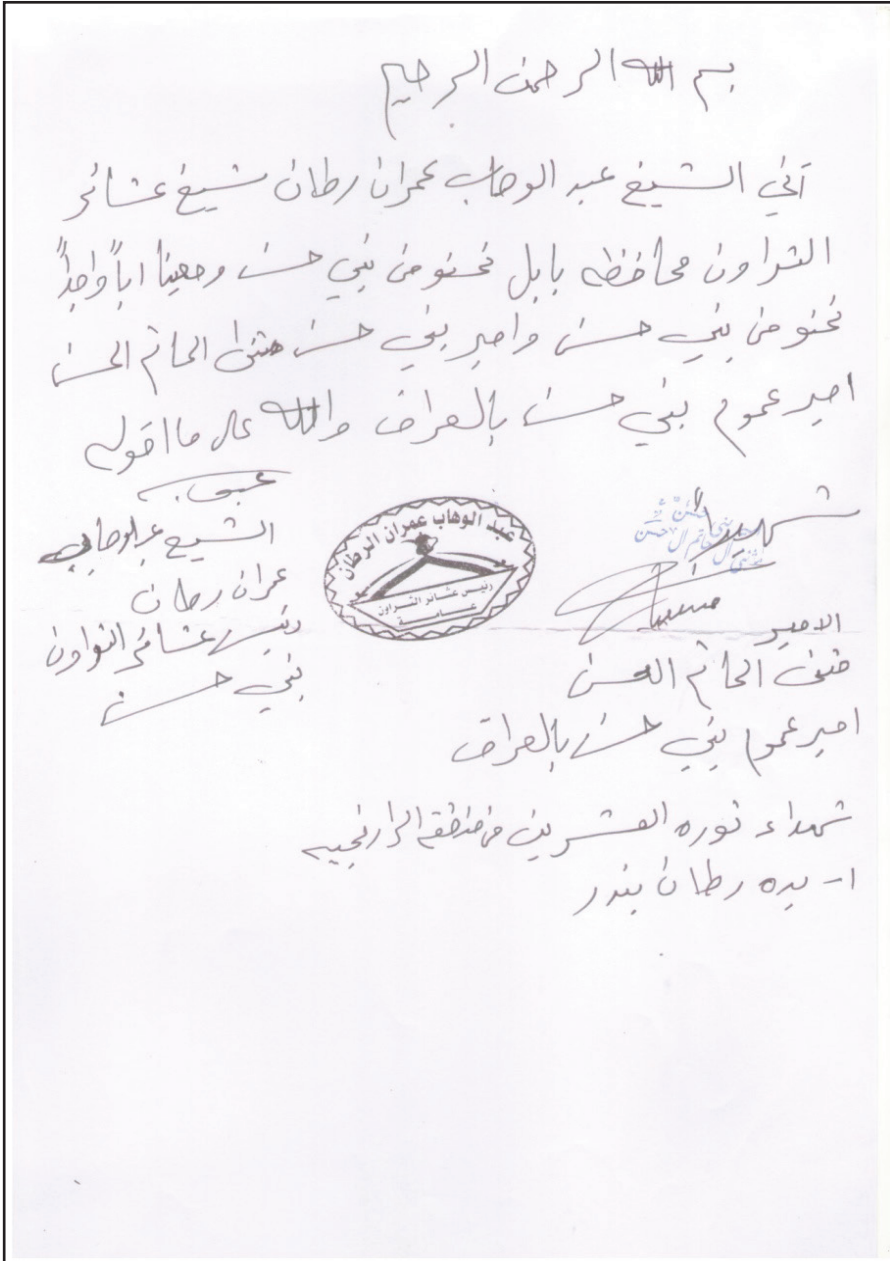 بسم الله الرحمن الرحيم
آني الشيخ عبد الوهاب عمران رطان شيخ عشائر
التراون محافظه بابل نحنو من بني حسن وجمعينا اباً واجداً
نحنو من بني حسن وامير بني حسن مثنى الحاتم الحسن
امير عموم بني حسن بالعراق والله على ما اقوله
شهيداً
الامير
مثنى الحاتم الحسن
امير عموم بني حسن بالعراق
عبد الوهاب عمران الرطان
رئيس عشائر التراون
عامة
الشيخ عبدالوهاب
عمران رطان
رئيس عشائر التراون
بني حسن
شهداء ثوره العشرين من منطقه الرارنجيه
١- بده رطان بندر